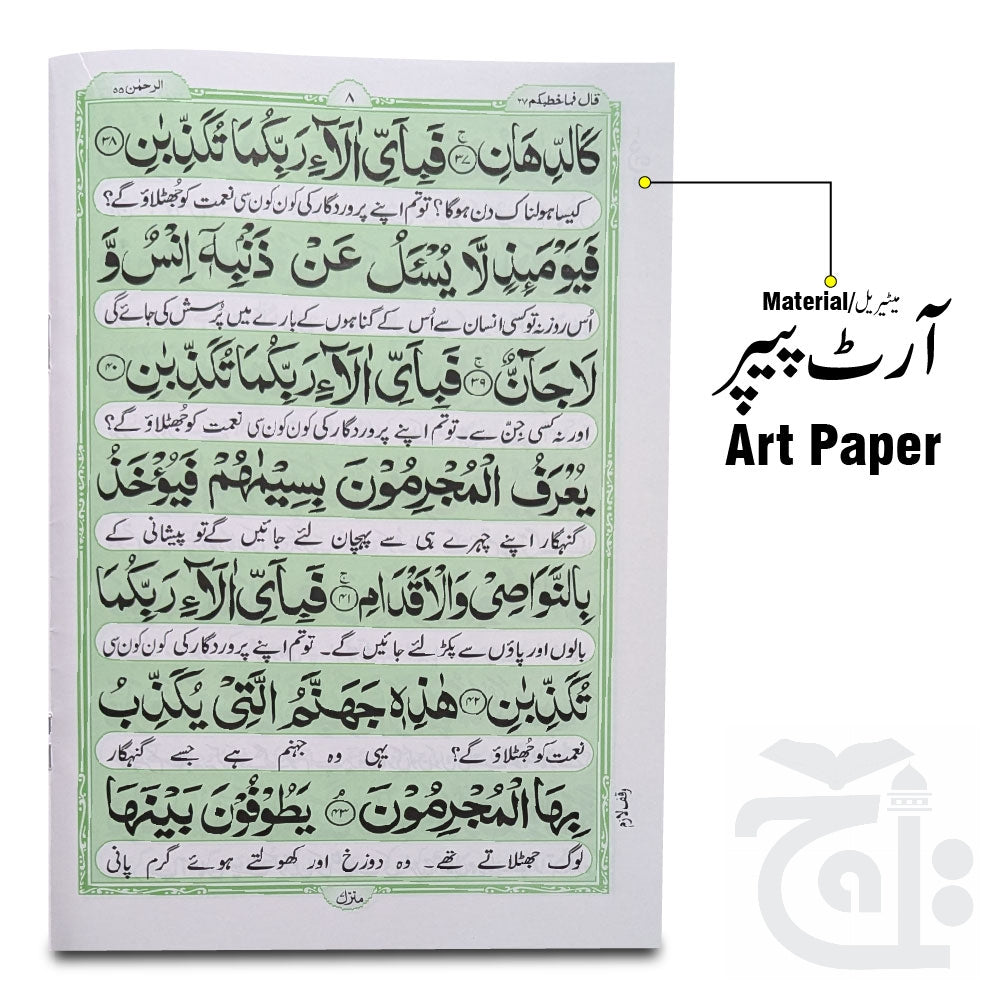 الرحمٰن ٥٥
٨
قال فما خطبکم ٢٧
كَالدِّهَانِ ۚ﴿٣٧﴾ فَبِاَیِّ اٰلَآءِ رَبِّكُمَا تُكَذِّبٰنِ ﴿٣٨﴾
کیسا ہولناک دن ہوگا؟ تو تم اپنے پروردگار کی کون کون سی نعمت کو جُھٹلاؤ گے؟
فَیَوْمَىِٕذٍ لَّا یُسْـَٔلُ عَنْ ذَنْۢبِهٖۤ اِنْسٌ وَّ
اُس روز نہ تو کسی انسان سے اُس کے گناہوں کے بارے میں پُرسش کی جائے گی
لَا جَآنٌّ ۚ﴿٣٩﴾ فَبِاَیِّ اٰلَآءِ رَبِّكُمَا تُكَذِّبٰنِ ﴿٤٠﴾
اور نہ کسی جِنّ سے۔ تو تم اپنے پروردگار کی کون کون سی نعمت کو جُھٹلاؤ گے؟
یُعْرَفُ الْمُجْرِمُوْنَ بِسِیْمٰىهُمْ فَیُؤْخَذُ
گنہگار اپنے چہرے ہی سے پہچان لئے جائیں گے تو پیشانی کے
بِالنَّوَاصِیْ وَالْاَقْدَامِ ۚ﴿٤١﴾ فَبِاَیِّ اٰلَآءِ رَبِّكُمَا
بالوں اور پاؤں سے پکڑ لئے جائیں گے۔ تو تم اپنے پروردگار کی کون کون سی
تُكَذِّبٰنِ ﴿٤٢﴾ هٰذِهٖ جَهَنَّمُ الَّتِیْ یُكَذِّبُ
نعمت کو جُھٹلاؤ گے؟ یہی وہ جہنم ہے جسے گنہگار
بِهَا الْمُجْرِمُوْنَ ۘ﴿٤٣﴾ یَطُوْفُوْنَ بَیْنَهَا
وقف لازم
لوگ جھٹلاتے تھے۔ وہ دوزخ اور کھولتے ہوئے گرم پانی
منزل
Material/میٹیریل
آرٹ پیپر
Art Paper